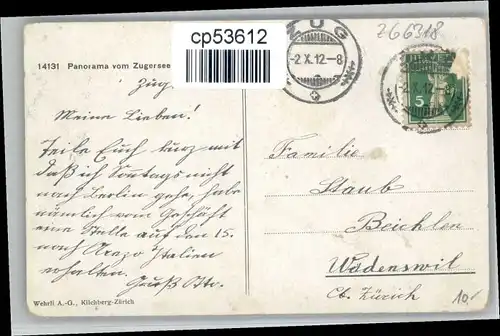 cp53612
266318
ZUG
-2.X.12-8
HELVETIA
5
-2.X.12-8
14131 Panorama vom Zugersee
Zug.
Meine Lieben!
Teile Euch kurz mit
daß ich Sonntags nicht
nach Berlin gehe, habe
nämlich vom Geschäft
eine Stelle auf den 15.
nach Arezo Italien
erhalten. Gruß Otto.
Familie
Staub
Beichlen
Wädenswil
Ct. Zürich
Wehrli A.-G., Kilchberg-Zürich
10.-